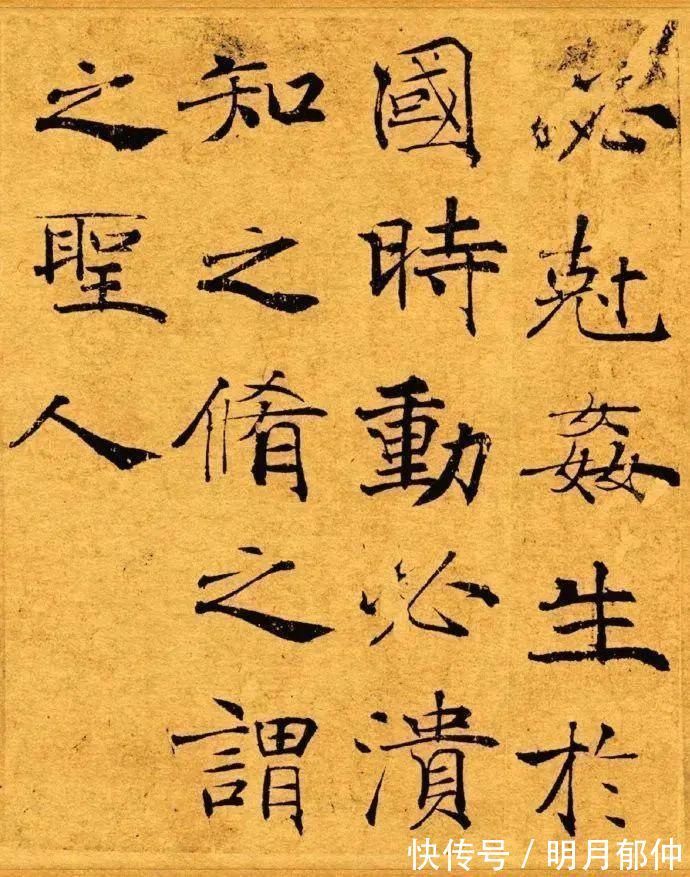 必尅姦生於
國時動必潰
知之脩之謂
之聖人
快传号 / 明月郁仲